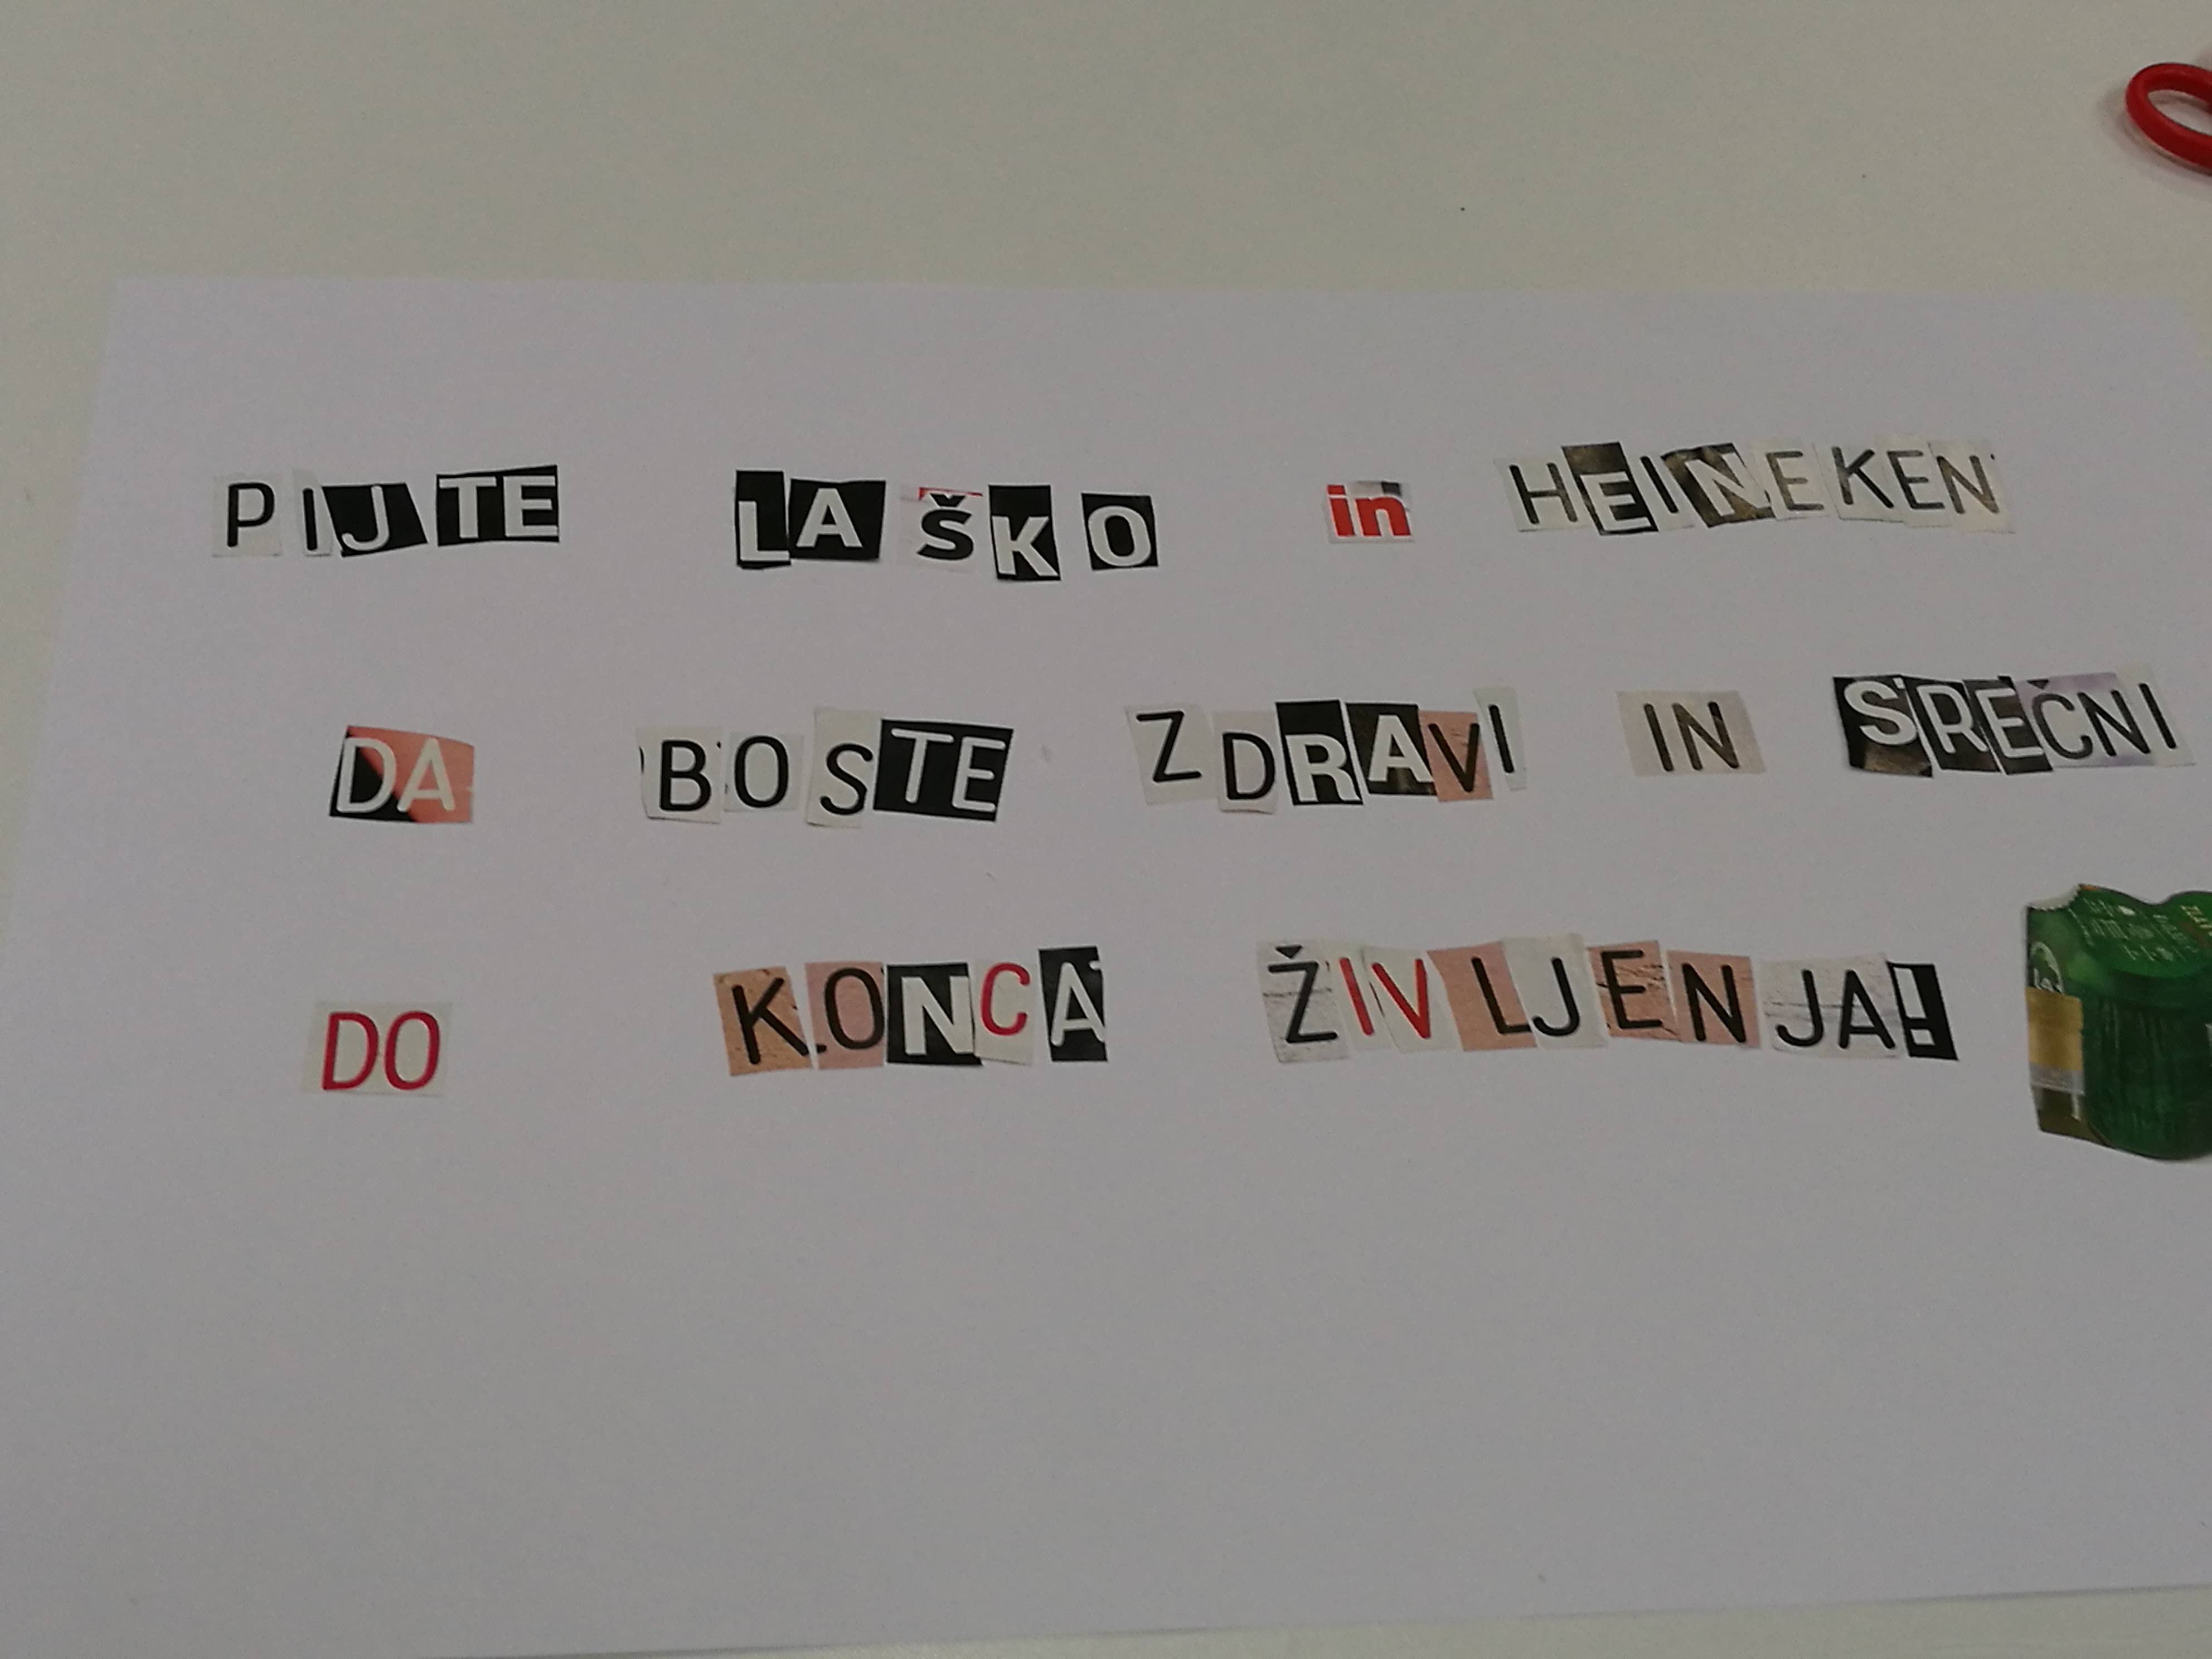 PIJTE LAŠKO in HEINEKEN
DA BOSTE ZDRAVI IN SREČNI
DO KONCA ŽIVLJENJA!